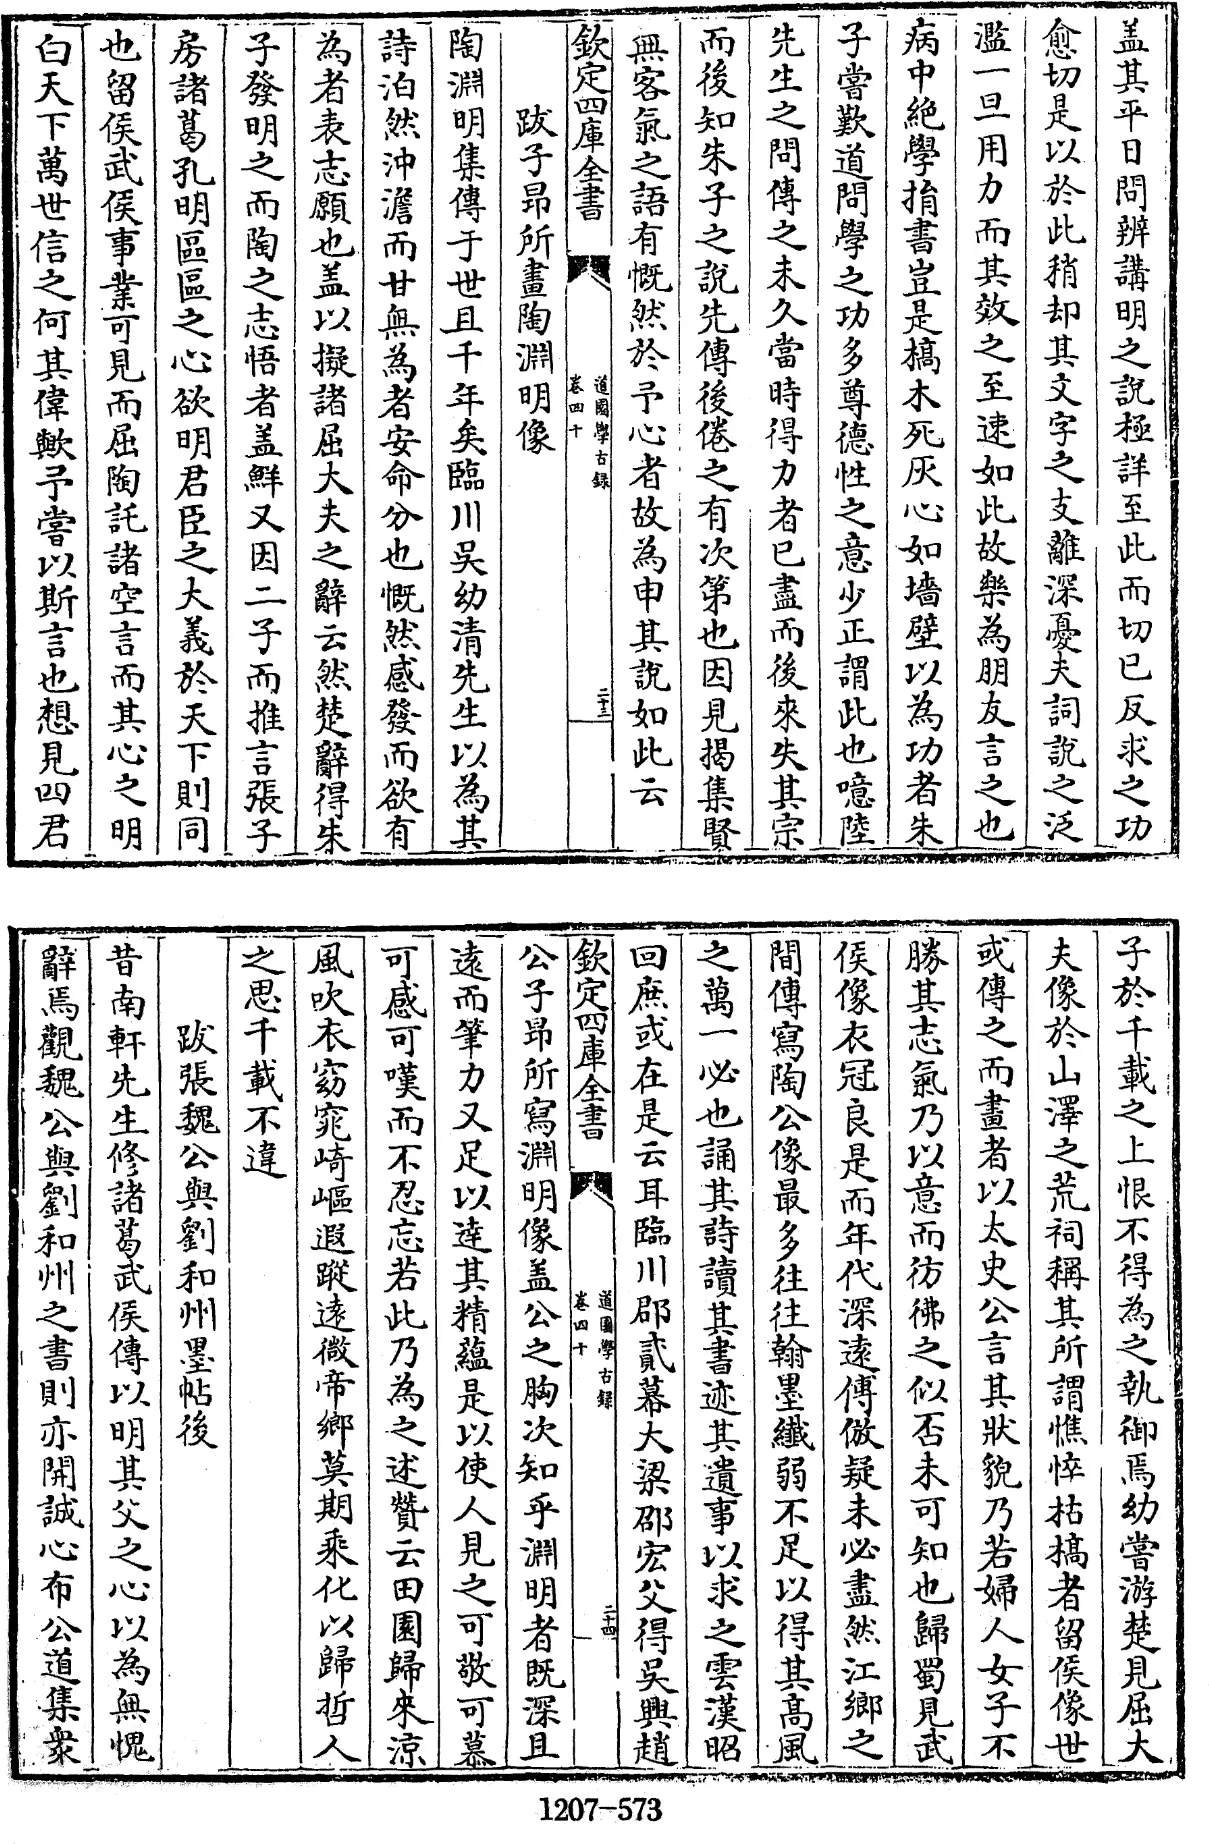 盖其平日問辨講明之說極詳至此而切已反求之功
愈切是以於此稍却其文字之支離深憂夫詞說之泛
濫一旦用力而其效之至速如此故樂為朋友言之也
病中絶學捐書豈是槁木死灰心如墻壁以為功者朱
子嘗歎道問學之功多尊德性之意少正謂此也噫陸
先生之問傳之未久當時得力者已盡而後來失其宗
而後知朱子之說先傳後倦之有次第也因見揭集賢
無客氣之語有慨然於予心者故為申其說如此云
欽定四庫全書
道園學古録
卷四十
二十三
跋子昻所畫陶淵明像
陶淵明集傳于世且千年矣臨川吳幼清先生以為其
詩泊然沖澹而甘無為者安命分也慨然感發而欲有
為者表志願也盖以擬諸屈大夫之辭云然楚辭得朱
子發明之而陶之志悟者盖鮮又因二子而推言張子
房諸葛孔明區區之心欲明君臣之大義於天下則同
也留侯武侯事業可見而屈陶託諸空言而其心之明
白天下萬世信之何其偉歟予嘗以斯言也想見四君
子於千載之上恨不得為之執御焉幼嘗游楚見屈大
夫像於山澤之荒祠稱其所謂憔悴枯槁者留侯像世
或傳之而畫者以太史公言其狀貌乃若婦人女子不
勝其志氣乃以意而彷彿之似否未可知也歸蜀見武
侯像衣冠良是而年代深遠傳倣疑未必盡然江鄉之
間傳寫陶公像最多往往翰墨纎弱不足以得其高風
之萬一必也誦其詩讀其書迹其遺事以求之雲漢昭
回庶或在是云耳臨川郡貳幕大梁邵宏父得吳興趙
欽定四庫全書
道園學古録
卷四十
二十四
公子昂所寫淵明像盖公之胸次知乎淵明者既深且
遠而筆力又足以達其精藴是以使人見之可敬可慕
可感可嘆而不忍忘若此乃為之述贊云田園歸來涼
風吹衣窈窕崎嶇遐蹤遠微帝鄉莫期乘化以歸哲人
之思千載不違
跋張魏公與劉和州墨帖後
昔南軒先生修諸葛武侯傳以明其父之心以為無愧
辭焉觀魏公與劉和州之書則亦開誠心布公道集衆
1207-573